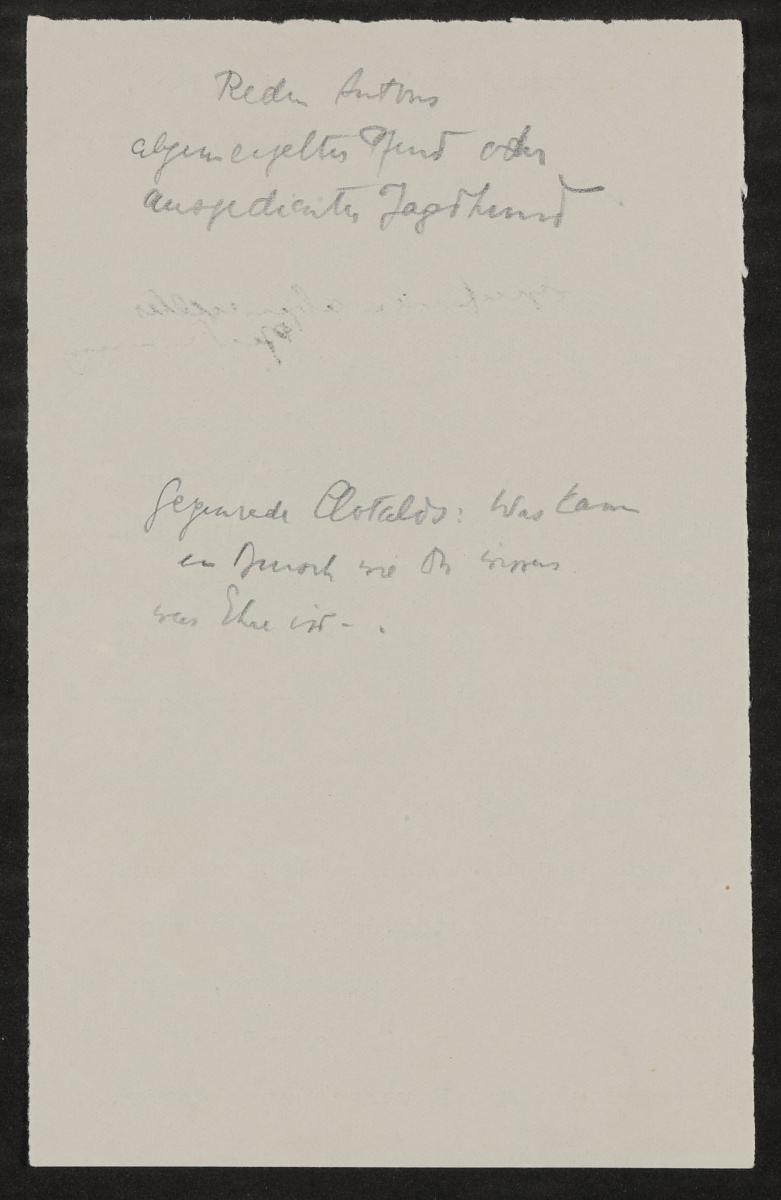 Reden Antons
abgemergeltes Pferd oder
ausgedienter Jagdhund
Gegenrede Clotalds: Was kann
ein Mensch wie Du wissen
was Ehre ist - .